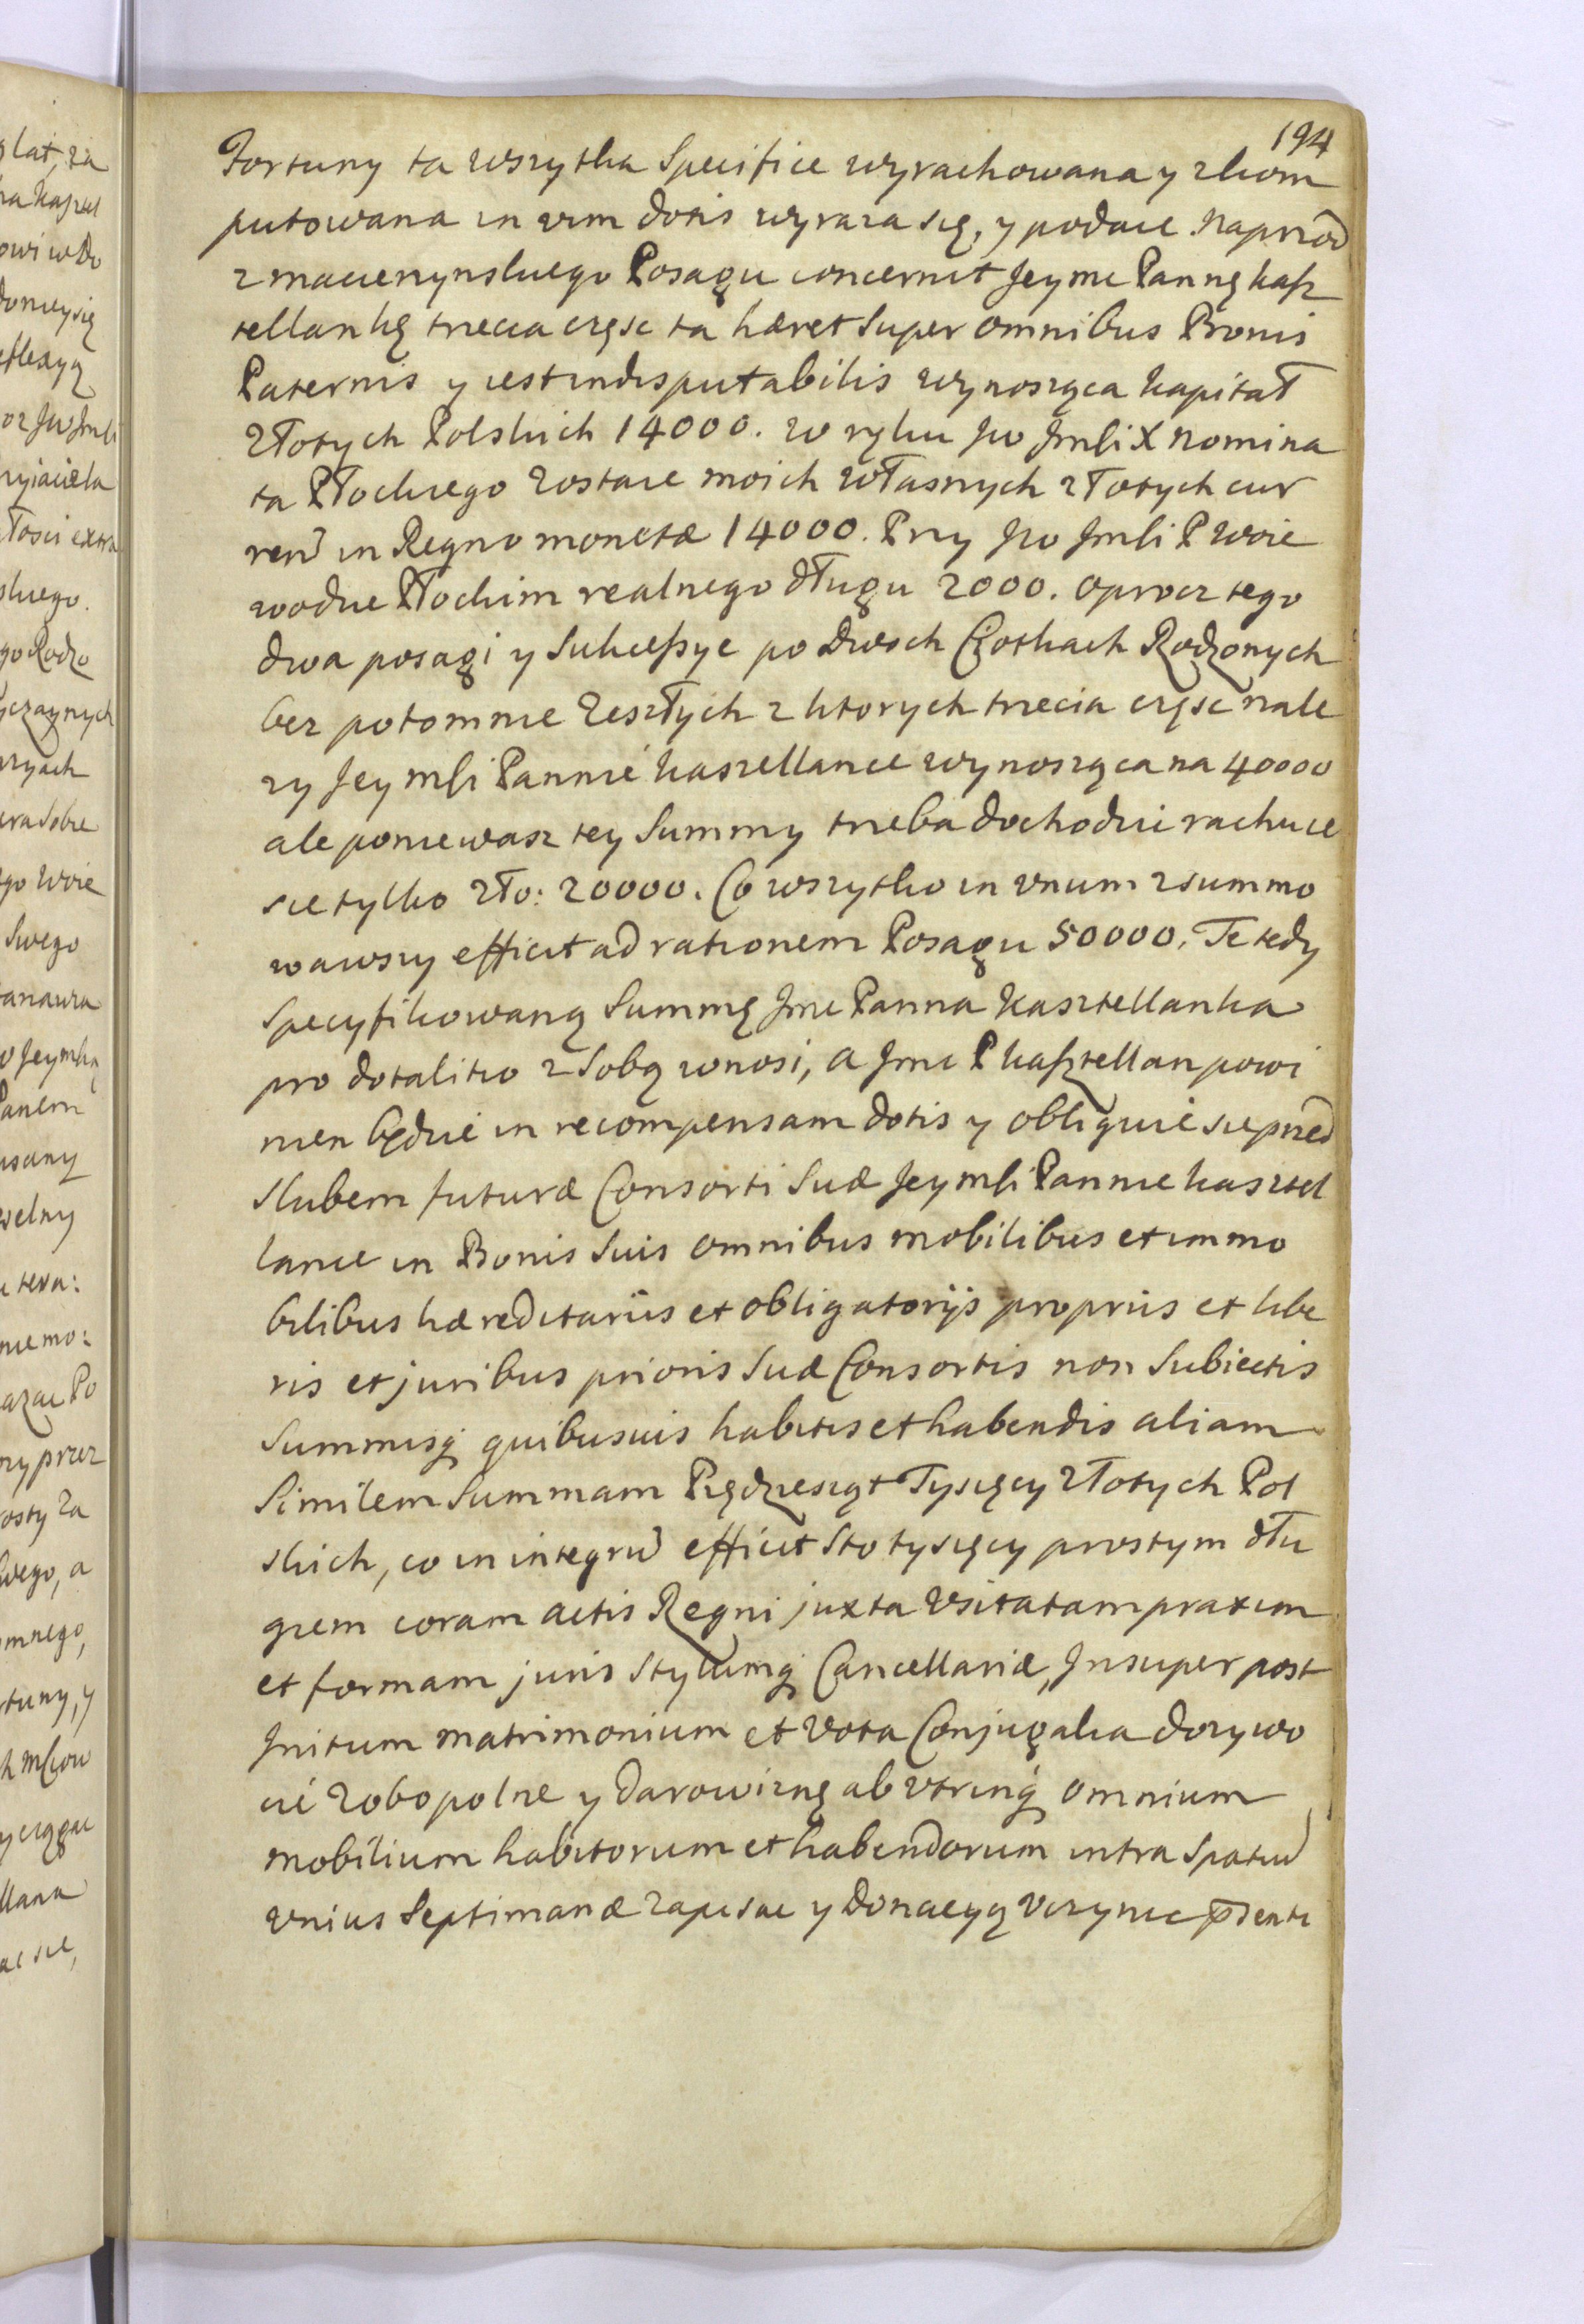 194
Fortuny ta wszytka Specifice wyrachowana y zkom
putowana in vim dotis wyraza się, y podaie. Naprzod
z macierzynskiego Posagu concernit Jeymc Pannę kasz
tellankę trzecia częsc ta hæret super omnibus Bonis
Paternis y iest indisputabilis wynosząca kapitał
złotych Polskich 14000. w ręku Jw Jmsci X Nomina
ta Płockiego zostaie moich własnych złotych cur
ren in Regno monetæ 14000. Przy Jw Jmsci P Woie
wodzie Płockim realnego długu 2000. oprocz tego
dwa posagi y Sukcessye po Dwoch Ciotkach Rodzonych
bez potomnie zeszłych z ktorych trzecia częsc nale
zy Jey msci Pannie kasztellance wynosząca na 40000
ale poniewasz tey Summy trzeba dochodzic rachuie
sie tylko zło: 20000. Co wszytko in vnum zsummo
wawszy efficit ad rationem Posagu 50000. Te tedy
specyfikowaną Summę Jmc Panna Kasztellanka
pro dotalitio z sobą wnosi, a Jmc P kasztellan powi
nien będzie in recompensam dotis y obliguie sie przed
slubem futuræ Consorti suæ Jey msci Pannie kasztel
lance in Bonis suis omnibus mobilibus et immo
bilibus hæreditariis et obligatorijs propriis et libe
ris et juribus prioris suæ Consortis non subiectis
summisq quibusuis habitis et habendis aliam
similem summam Pięcdziesiąt Tysięcy złotych Pol
skich, co in integru efficit sto tysięcy prostym dłu
giem coram actis Regni juxta vsitatam praxim
et formam juris stylumq Cancellariæ, Insuper post
Initum matrimonium et vota Conjugalia dozywo
cie zobopolne y darowiznę ab vtrinq omnium
mobilium habitorum et habendorum intra spatiu
vnius septimanæ zapisac y donacyą vczynic